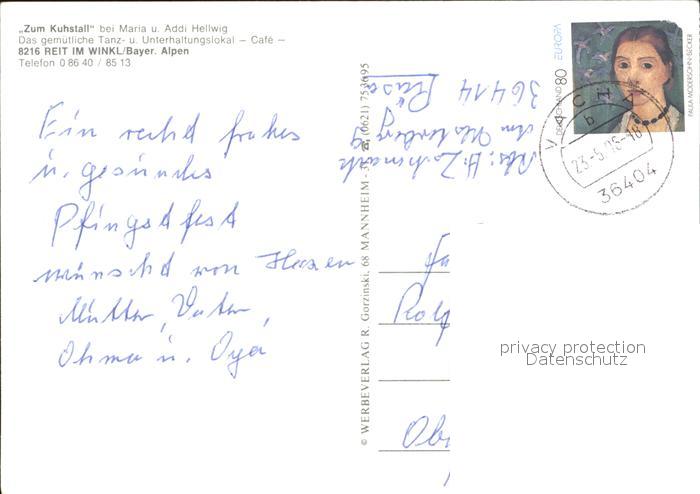 „Zum Kuhstall" bei Maria u. Addi Hellwig
Das gemütliche Tanz- u. Unterhaltungslokal – Café –
8216 REIT IM WINKL/Bayer. Alpen
Telefon 0 86 40 / 85 13
Ein rechd frohes
u. gesundes
Pfingstfest
wünschd von Herzen
Mutter, Vater,
Ohma u. Opa
© WERBEVERLAG R. Gorzinski, 68 MANNHEIM
36414
DEUTSCHLAND 80 EUROPA
PAULA MODERSOHN-BECKER
VACHA
b
23-5.96-18
36404
Rolf
privacy protection
Datenschutz